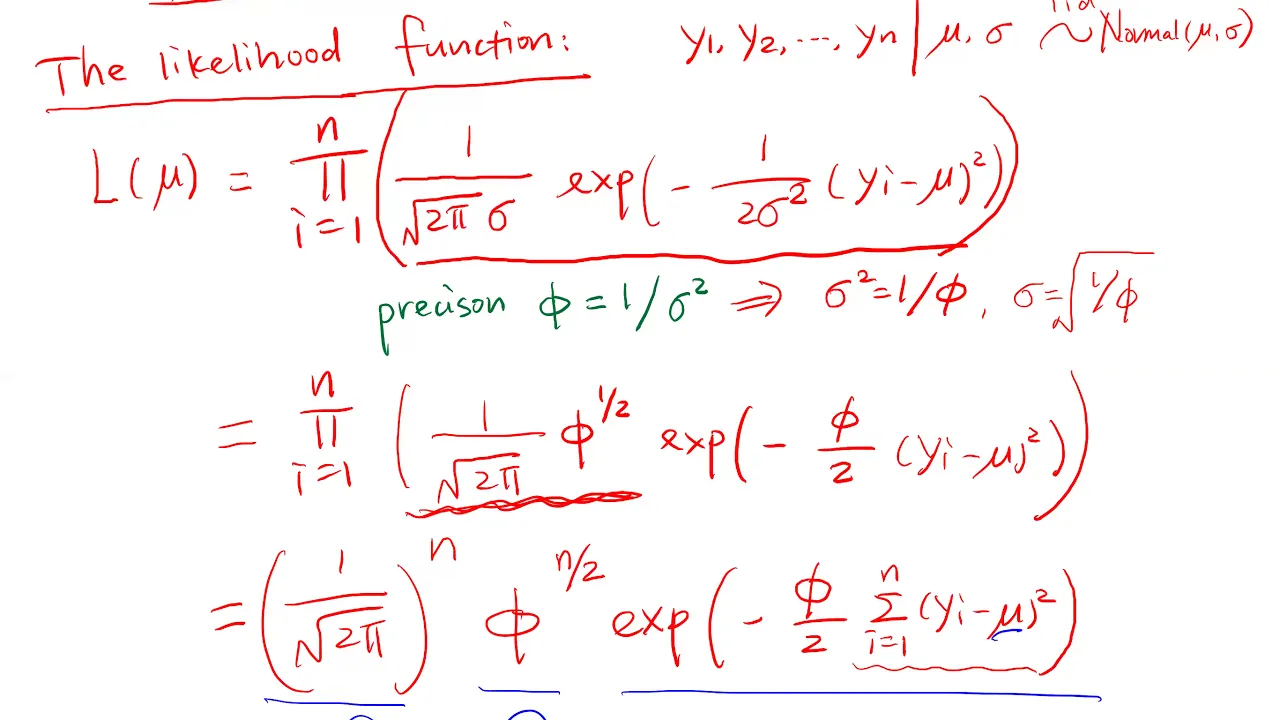 The likelihood function: y1, y2, ..., yn | μ, σ iid ~ Normal(μ, σ)
L(μ) = ∏_{i=1}^{n} ( 1/(√2π σ) exp(- 1/(2σ²) (yi-μ)²) )
precison ϕ = 1/σ² ⇒ σ²=1/ϕ, σ=√(1/ϕ)
= ∏_{i=1}^{n} ( 1/√2π ϕ^{1/2} exp(- ϕ/2 (yi-μ)²) )
= (1/√2π)^n ϕ^{n/2} exp(- ϕ/2 Σ_{i=1}^{n} (yi-μ)²)